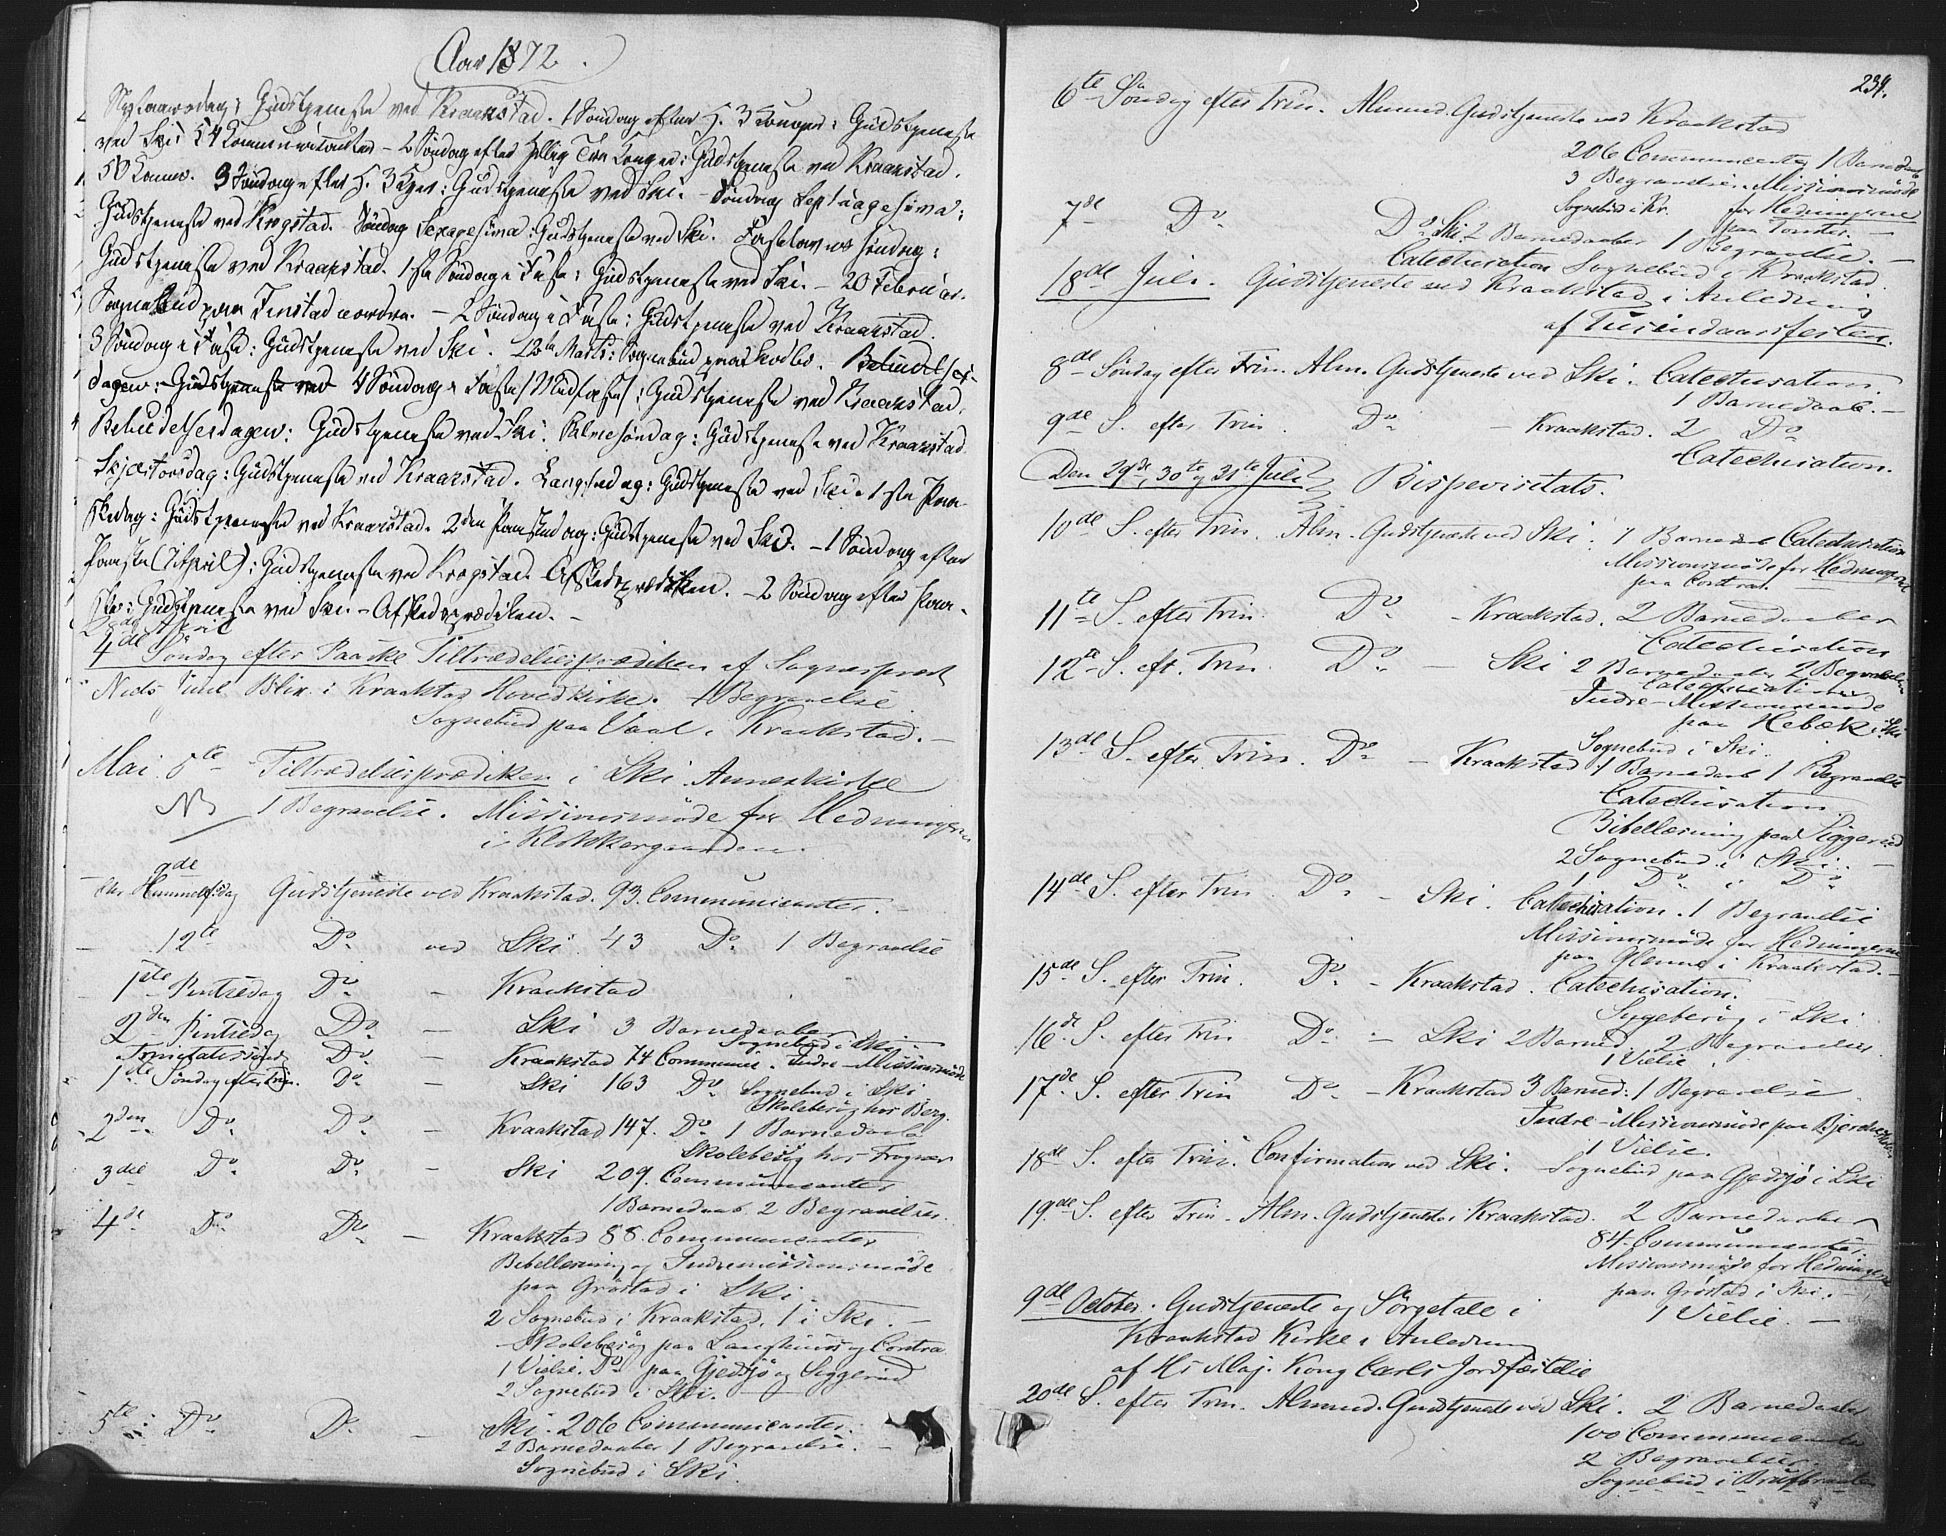 Aar 1872.
Nytaarsdag: Gudstjeneste ved Kraakstad. 1 Søndag efter H. 3 Konger: Gudstjeneste
ved Ski 54 Communicanter – 2 Søndag efter Hellig Tre Konger: Gudstjeneste ved Kraakstad.
50 Comm. 3 Søndag efter H. 3 Kger: Gudstjeneste ved Ski. – Søndag Septuagesima:
Gudstjeneste ved Krogstad. Søndag Sexagesima: Gudstjeneste ved Ski. Fastelavns Søndag:
Gudstjeneste ved Kraakstad. 1ste Søndag i Faste: Gudstjeneste ved Ski. – 20 Februar.
Sognebud paa Finstad nordre. – 2 Søndag i Faste: Gudstjeneste ved Kraakstad.
3 Søndag i Faste: Gudstjeneste ved Ski. 12te Marts: Sognebud paa Skodbo. Bebudelses-
dagen: Gudstjeneste ved 4 Søndag i Faste (Midfaste): Gudstjeneste ved Kraakstad.
Bebudelsesdagen: Gudstjeneste ved Ski. Palmesøndag: Gudstjeneste ved Kraakstad.
Skjærtorsdag: Gudstjeneste ved Kraakstad. Langfredag: Gudstjeneste ved Ski. 1ste Paa-
skedag: Gudstjeneste ved Kraakstad. 2den Paaskedag: Gudstjeneste ved Ski. – 1 Søndag efter
Paaske (7 April): Gudstjeneste ved Krogstad. Afskedsprædiken. – 2 Søndag efter Paa-
ske: Gudstjeneste ved Ski. – Afskedsprædiken. –
April
4de Søndag efter Paaske Tiltrædelsesprædiken af Sognepræst
Niels Juul Blix i Kraakstad Hovedkirke. 1 Begravelse.
Sognebud paa Vaal i Kraakstad. –
Mai 5te Tiltrædelsesprædiken i Ski Annexkirke
1 Begravelse. Missionsmøde for Hedningene
i Klokkergaarden.
9de
Chr Himmelfsdag Gudstjeneste ved Kraakstad. 93 Communicanter.
– 12te Do ved Ski. 43 Do 1 Begravelse
1ste Pintsedag Do – Kraakstad
2den Pintsedag Do – Ski 3 Barnedaaber
Sognebud i Ski
Trinitatissøndag Do – Kraakstad 74 Communic. Indre-Missionsmøde
1ste Søndag efter Trin. Do – Ski 163 Do Sognebud i Ski
Skolebesøg hos Berg.
2den Do Do – Kraakstad 147. Do 1 Barnedaab
Skolebesøg hos Frogner
3die Do Do – Ski 209. Communicanter
1 Barnedaab. 2 Begravelser.
4de Do Do – Kraakstad 88. Communicanter
Bibellæsning og Indremissionsmøde
paa Grøstad i Ski.
2 Sognebud i Kraakstad. 1 i Ski. –
– Skolebesøg paa Langhuus og Contra
1 Vielse. Do paa Gjedsjø og Siggerud
2 Sognebud i Ski.
5te Do Do Ski. 206 Communicanter.
2 Barnedaaber 1 Begravelse. –
Sognebud i Ski.
234.
6te Søndag efter Trin. Almind. Gudstjeneste ved Kraakstad
206 Communicanter 1 Barnedaab
3 Begravelser. Missionsmøde
Sognebud i Kr. for Hedningerne
paa Tomter. –
7de Do Do Ski 2 Barnedaaber 1 Begravelse. –
Catechisation Sognebud i Kraakstad.
18de Juli. Gudstjeneste ved Kraakstad i Anledning
af Tusindaarsfesten.
8de Søndag efter Trin. Alm. Gudstjeneste ved Ski. Catechisation
1 Barnedaab. –
9de S. efter Trin. Do – Kraakstad. 2 Do
Catechisation.
Den 29de, 30te og 31te Juli Bispevisitats.
10de S. efter Trin. Alm. Gudstjeneste ved Ski. 1 Barned. Catechisation
Missionsmøde for Hedningene
paa Contra.
11te S. efter Trin. Do – Kraakstad. 2 Barnedaaber
Catechisation
12te S. eft. Trin. Do – Ski 2 Barnedaaber 2 Begravelser
Catechisation
Indre-Missionsmøde
paa Hebæk i Ski
Sognebud i Ski.
13de S. efter Trin. Do – Kraakstad 1 Barnedaab 1 Begravelse
Catechisation
Bibellæsning paa Siggerud
2 Sognebud i Ski. –
1 Do i Do
14de S. efter Trin. Do – Ski. Catechisation. 1 Begravelse
Missionsmøde for Hedningerne
paa Glenne i Kraakstad. –
15de S. efter Trin. Do – Kraakstad. Catechisation.
Sygebesøg i Ski
16de S. efter Trin Do – Ski 2 Barned. 2 Begravelser.
1 Vielse
17de S. efter Trin Do – Kraakstad 3 Barned: 1 Begravelse.
Indre-Missionsmøde paa
1 Vielse.
18de S. efter Trin. Confirmation ved Ski. – Sognebud paa Gjedsjø i Ski
19de S. efter Trin. Alm. Gudstjeneste i Kraakstad. 2 Barnedaaber
84 Communicanter.
Missionsmøde for Hedningene
paa Grøstad i Ski. –
9de October. Gudstjeneste og Sørgetale i 1 Vielse. –
Kraakstad Kirke i Anledning
af Hs Maj. Kong Carls Jordfæstelse
20de S. efter Trin. Almind. Gudstjeneste ved Ski. 2 Barnedaaber
100 Communicanter
2 Begravelser.
Sognebud i